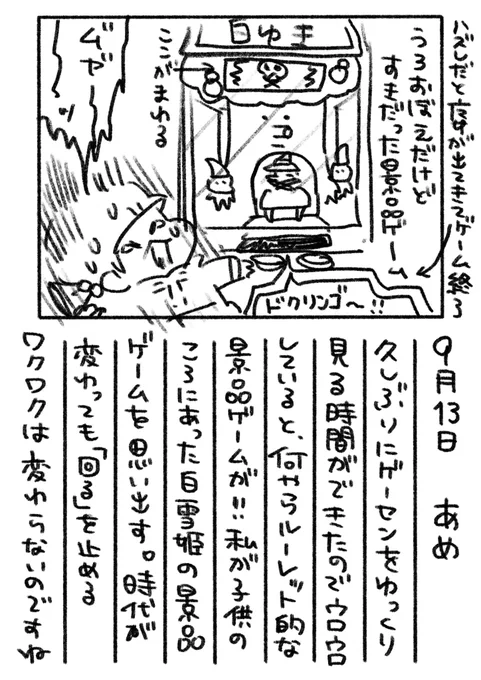 ハズレだと魔女が出てきてゲーム終了
うろおぼえだけど
すきだった景品ゲーム
白ゆき
ここがまわる
ムギャ
ドクリンゴ〜!!
9月13日 あめ
久しぶりにゲーセンをゆっくり
見る時間ができたのでウロウロ
していると、何やらルーレット的な
景品ゲームが!!私が子供の
ころにあった白雪姫の景品
ゲームを思い出す。時代が
変わっても「回る」を止める
ワクワクは変わらないのですね